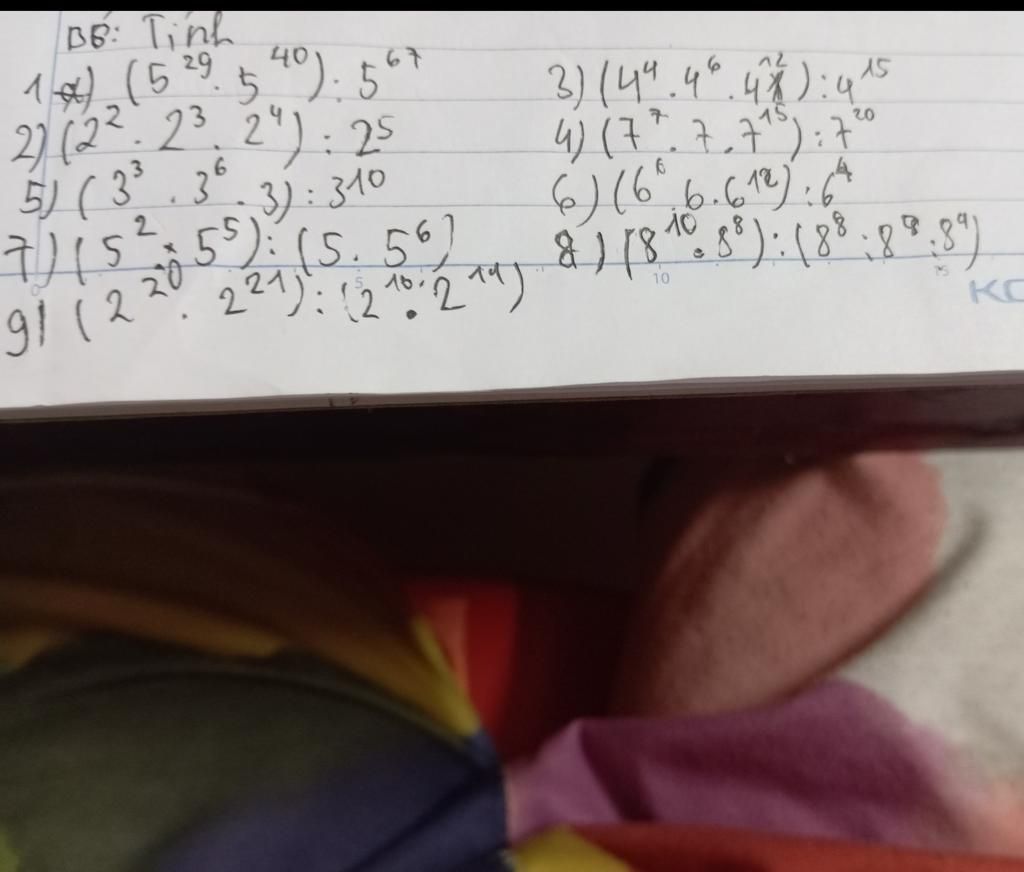 B6: Tính
1) (5²⁹ . 5⁴⁰) : 5⁶⁷ 3) (4⁴ . 4⁶ . 4¹²) : 4¹⁵
2) (2² . 2³ . 2⁴) : 2⁵ 4) (7⁷ . 7 . 7¹⁵) : 7²⁰
5) (3³ . 3⁶ . 3) : 3¹⁰ 6) (6⁶ . 6 . 6¹²) : 6⁴
7) (5² . 5⁵) : (5 . 5⁶) 8) (8¹⁰ . 8⁸) : (8⁸ : 8⁸ : 8⁴)
9) (2²⁰ . 2²¹) : (2¹⁰ . 2¹⁹)
5 10 15